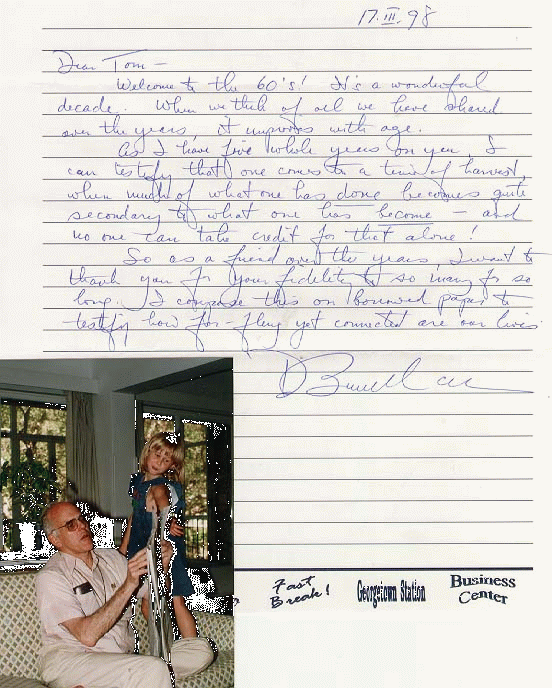 17.III.98
Dear Tom –
Welcome to the 60's! It's a wonderful
decade. When we think of all we have shared
over the years, it improves with age.
As I have five whole years on you, I
can testify that one comes to a time of harvest,
when much of what one has done becomes quite
secondary to what one has become – and
no one can take credit for that alone!
So as a friend over the years, I want to
thank you for your fidelity to so many for so
long. I compose this on borrowed paper to
testify how far-flung yet connected are our lives
Fast
Break!
Georgetown Station
Business
Center